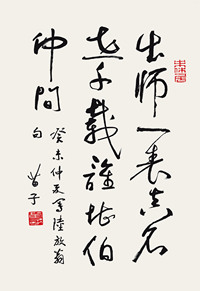 出师一表真名
世千载谁堪伯
仲间
癸未仲夏写陆放翁
句